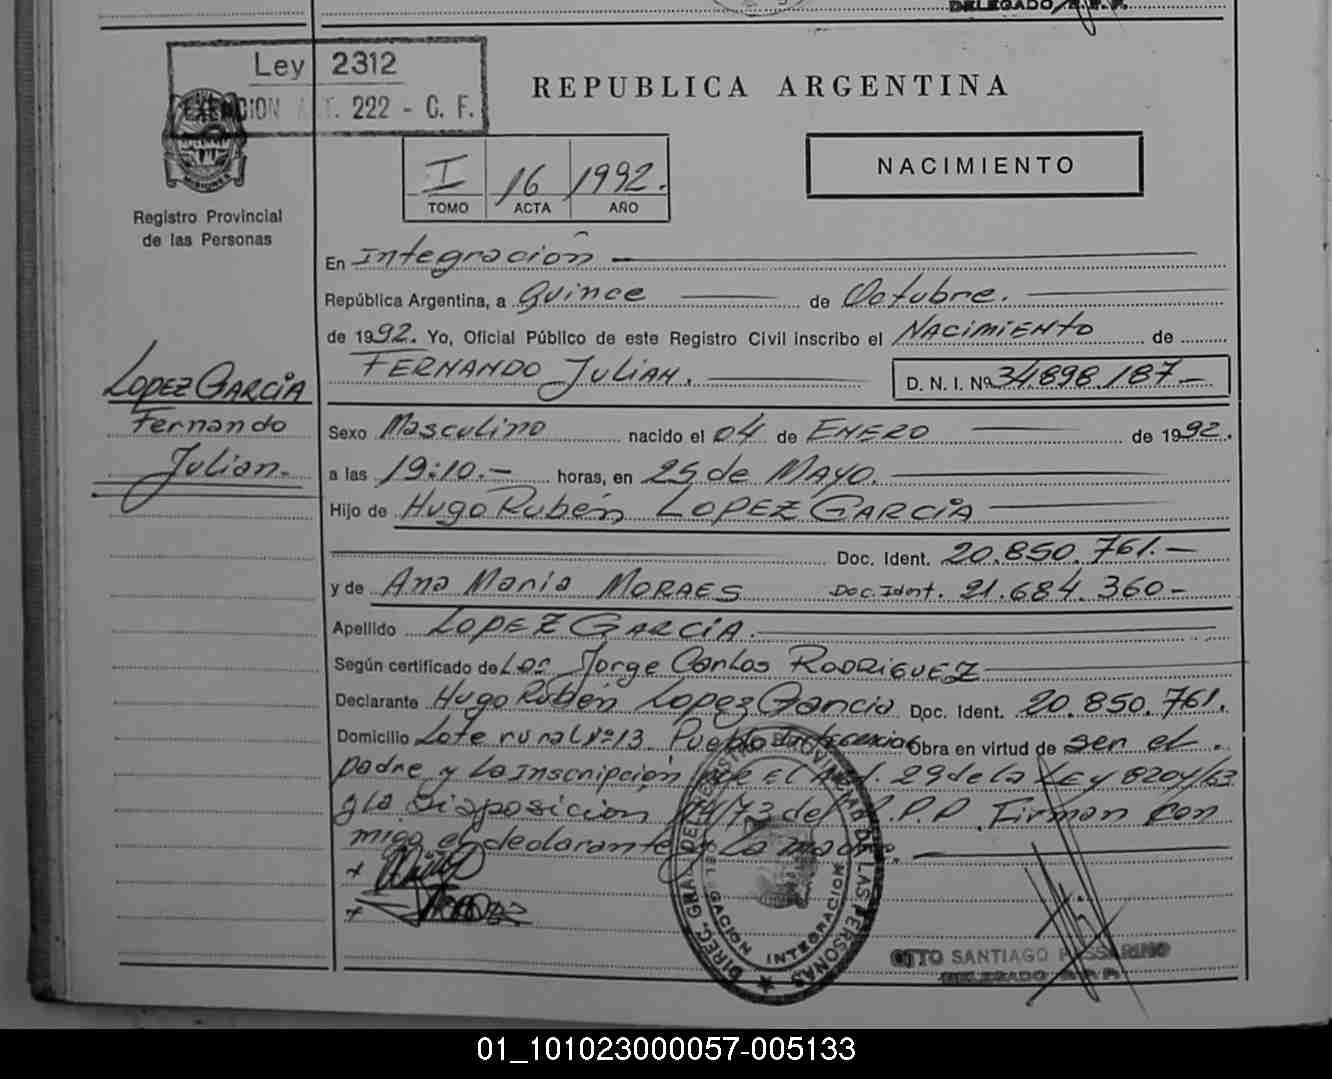 DELEGADO R.P.P.
Ley 2312
EXENCION ART. 222 - C. F.
REPUBLICA ARGENTINA
NACIMIENTO
MISIONES
Registro Provincial
de las Personas
I 16 1992.
TOMO ACTA AÑO
En Integración
República Argentina, a Quince de Octubre.
de 1992. Yo, Oficial Público de este Registro Civil inscribo el NACIMIENTO de
FERNANDO JULIAN. D. N. I. Nº 34.898.187-
LOPEZ GARCIA
Fernando
Julian.-
Sexo Masculino nacido el 04 de ENERO de 1992.
a las 19:10.- horas, en 25 de MAYO.
Hijo de Hugo Rubén LOPEZ GARCIA
Doc. Ident. 20.850.761.-
y de Ana Maria MORAES Doc. Idnt. 21.684.360-
Apellido LOPEZ GARCIA.
Según certificado de Jorge Carlos RODRIGUEZ
Declarante Hugo Rubén Lopez Garcia Doc. Ident. 20.850.761.
Domicilio Lote rural Nº 13 Pueblo Obra en virtud de ser el
padre y la inscripción por EL Art. 29 de la LEy 8204/63
y la Disposición /73 del R.P.P. Firman con
migo el declarante y la madre.
DIREC. GRAL. DEL REGISTRO PROVINCIAL DE LAS PERSONAS
INTEGRACION
OTTO SANTIAGO PASSARINO
DELEGADO R.P.P.
01_101023000057-005133